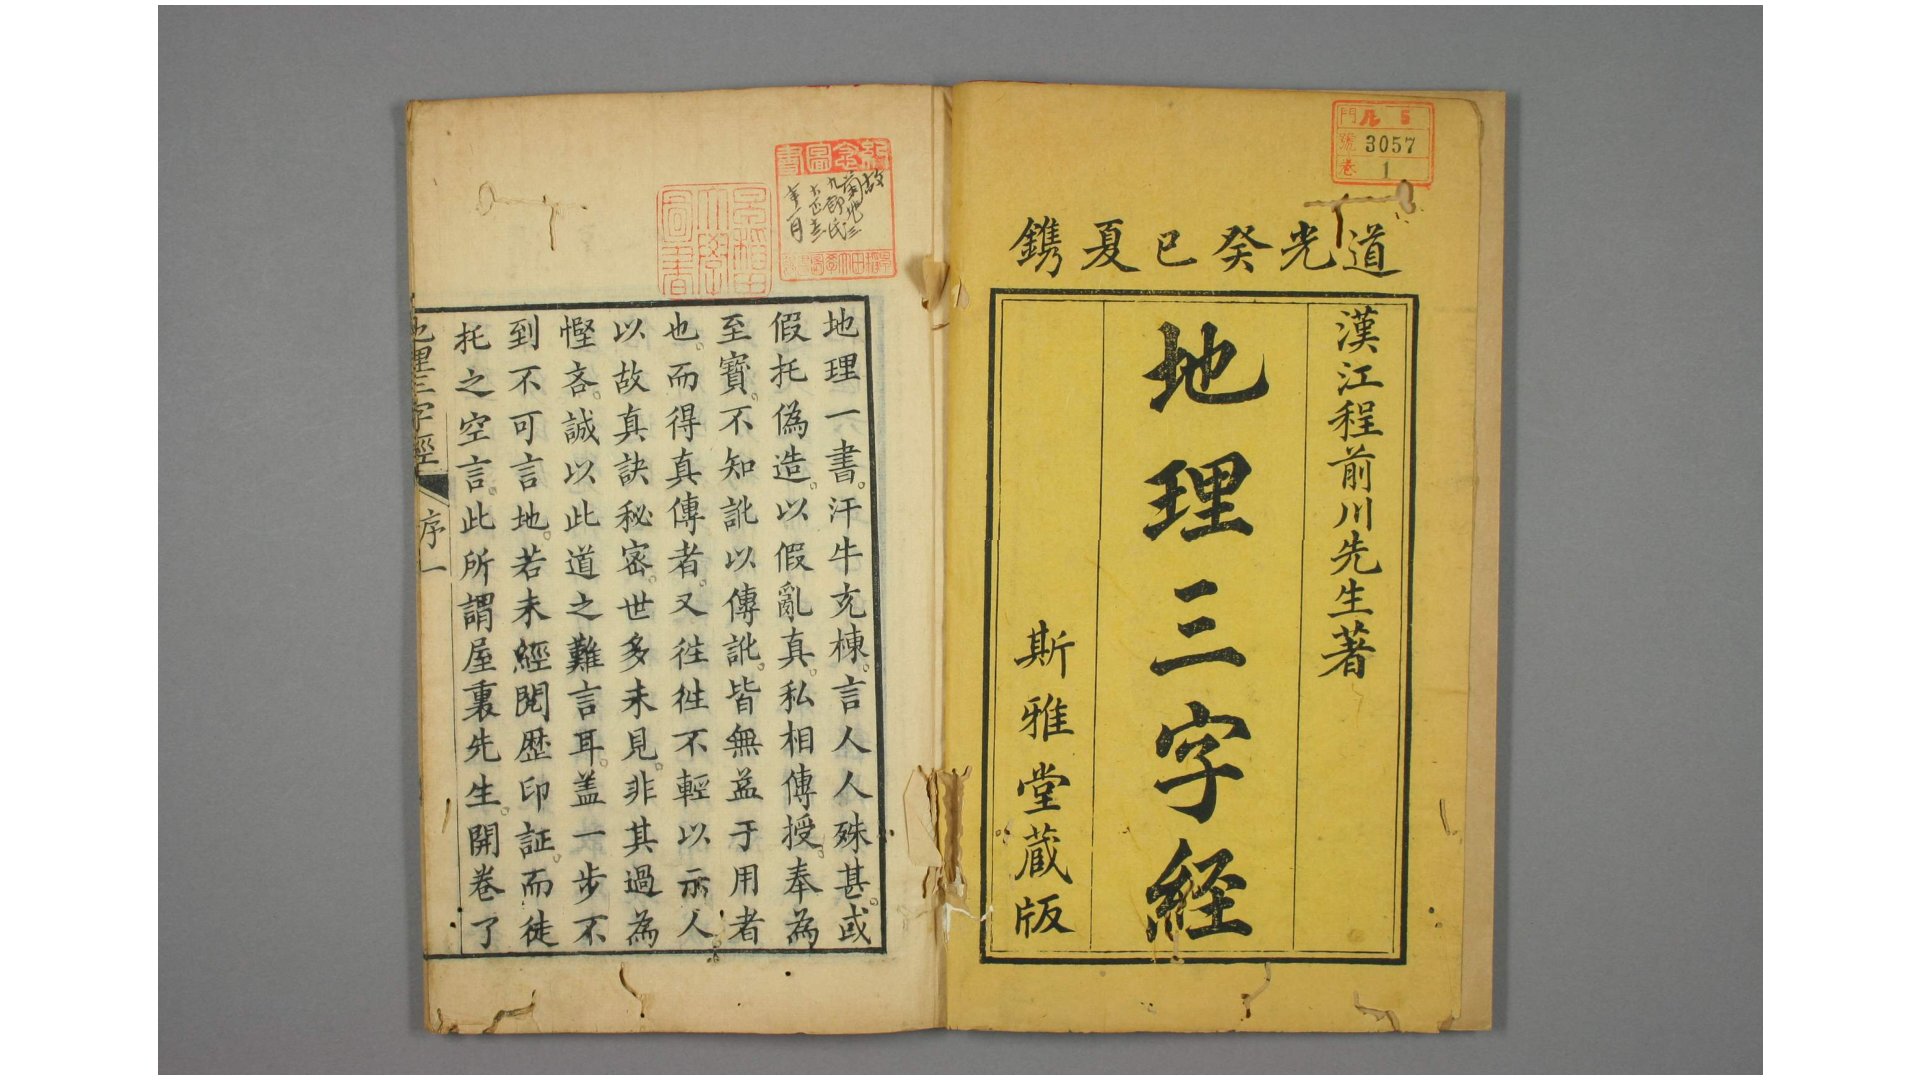 門 ル 5
號 3057
卷 1
道光癸巳夏鐫
漢江程前川先生著
地理三字経
斯雅堂蔵版
紀念圖書
故
菊地三
九郎氏
大正
年一月
早稲田大學圖書
地理一書。汗牛充棟。言人人殊甚。或
假托偽造。以假亂真。私相傳授。奉為
至寳。不知訛以傳訛。皆無益于用者
也。而得真傳者。又徃徃不輕以示人
以故真訣秘密。世多未見。非其過為
慳吝。誠以此道之難言耳。盖一步不
到不可言地。若未經閱歷印証。而徒
托之空言。此所謂屋裏先生。開卷了
地理三字經
序
一